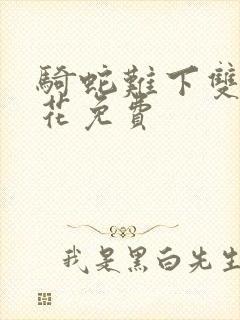 騎蛇難下雙
花免費
我是黑白先生